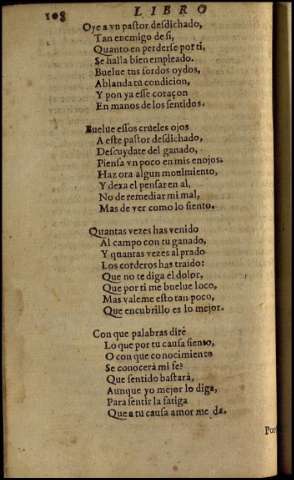 108 LIBRO
Oye a vn pastor desdichado,
Tan enemigo de si,
Quanto en perderse por ti,
Se halla bien empleado.
Buelue tus sordos oydos,
Ablanda tu condicion,
Y pon ya esse coraçon
En manos de los sentidos.
Buelue essos crueles ojos
A este pastor desdichado,
Descuydate del ganado,
Piensa vn poco en mis enojos.
Haz ora algun mouimiento,
Y dexa el pensar en al,
No de remediar mi mal,
Mas de ver como lo siento.
Quantas vezes has venido
Al campo con tu ganado,
Y quantas vezes al prado
Los corderos has traido:
Que no te diga el dolor,
Que por ti me buelue loco,
Mas valeme esto tan poco,
Que encubrillo es lo mejor.
Con que palabras diré
Lo que por tu causa siento,
O con que conocimiento
Se conocerà mi fe?
Que sentido bastarà,
Aunque yo mejor lo diga,
Para sentir la fatiga
Que a tu causa amor me da.
Por